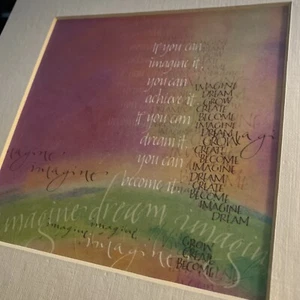 if you can
imagine it,
you can
achieve it
if you can
dream it,
you can
become it
IMAGINE
DREAM
GROW
CREATE
BECOME
IMAGINE
DREAM
GROW
CREATE
BECOME
IMAGINE
DREAM
CREATE
BECOME
IMAGINE
DREAM
imagine
imagine
imagine dream imagin
imagine
imagine
imagine
GROW
CREATE
BECOME